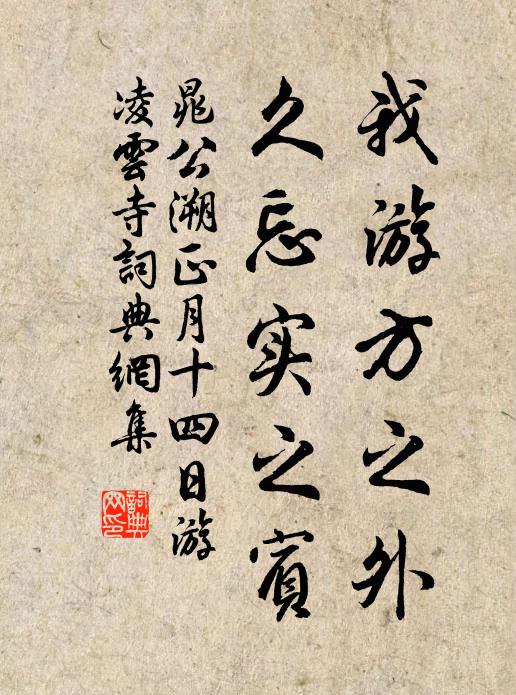 我游方之外
久忘实之賓
晁公溯正月十四日游
凌雲寺詞典網集
詞典网印